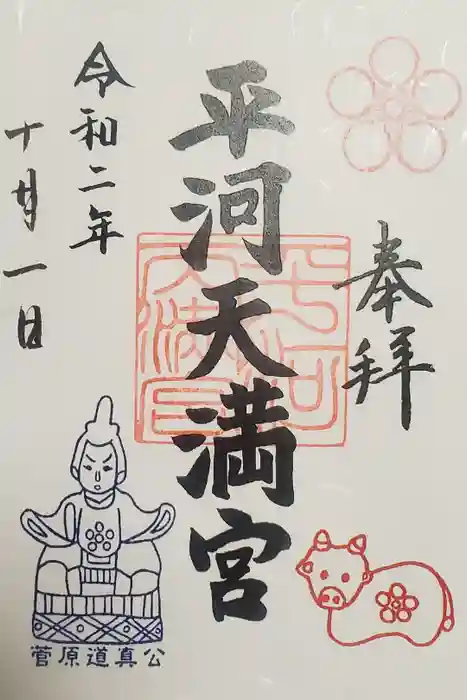 奉拝
平河天満宮
平河
天満宮
令和二年
十月一日
菅原道真公